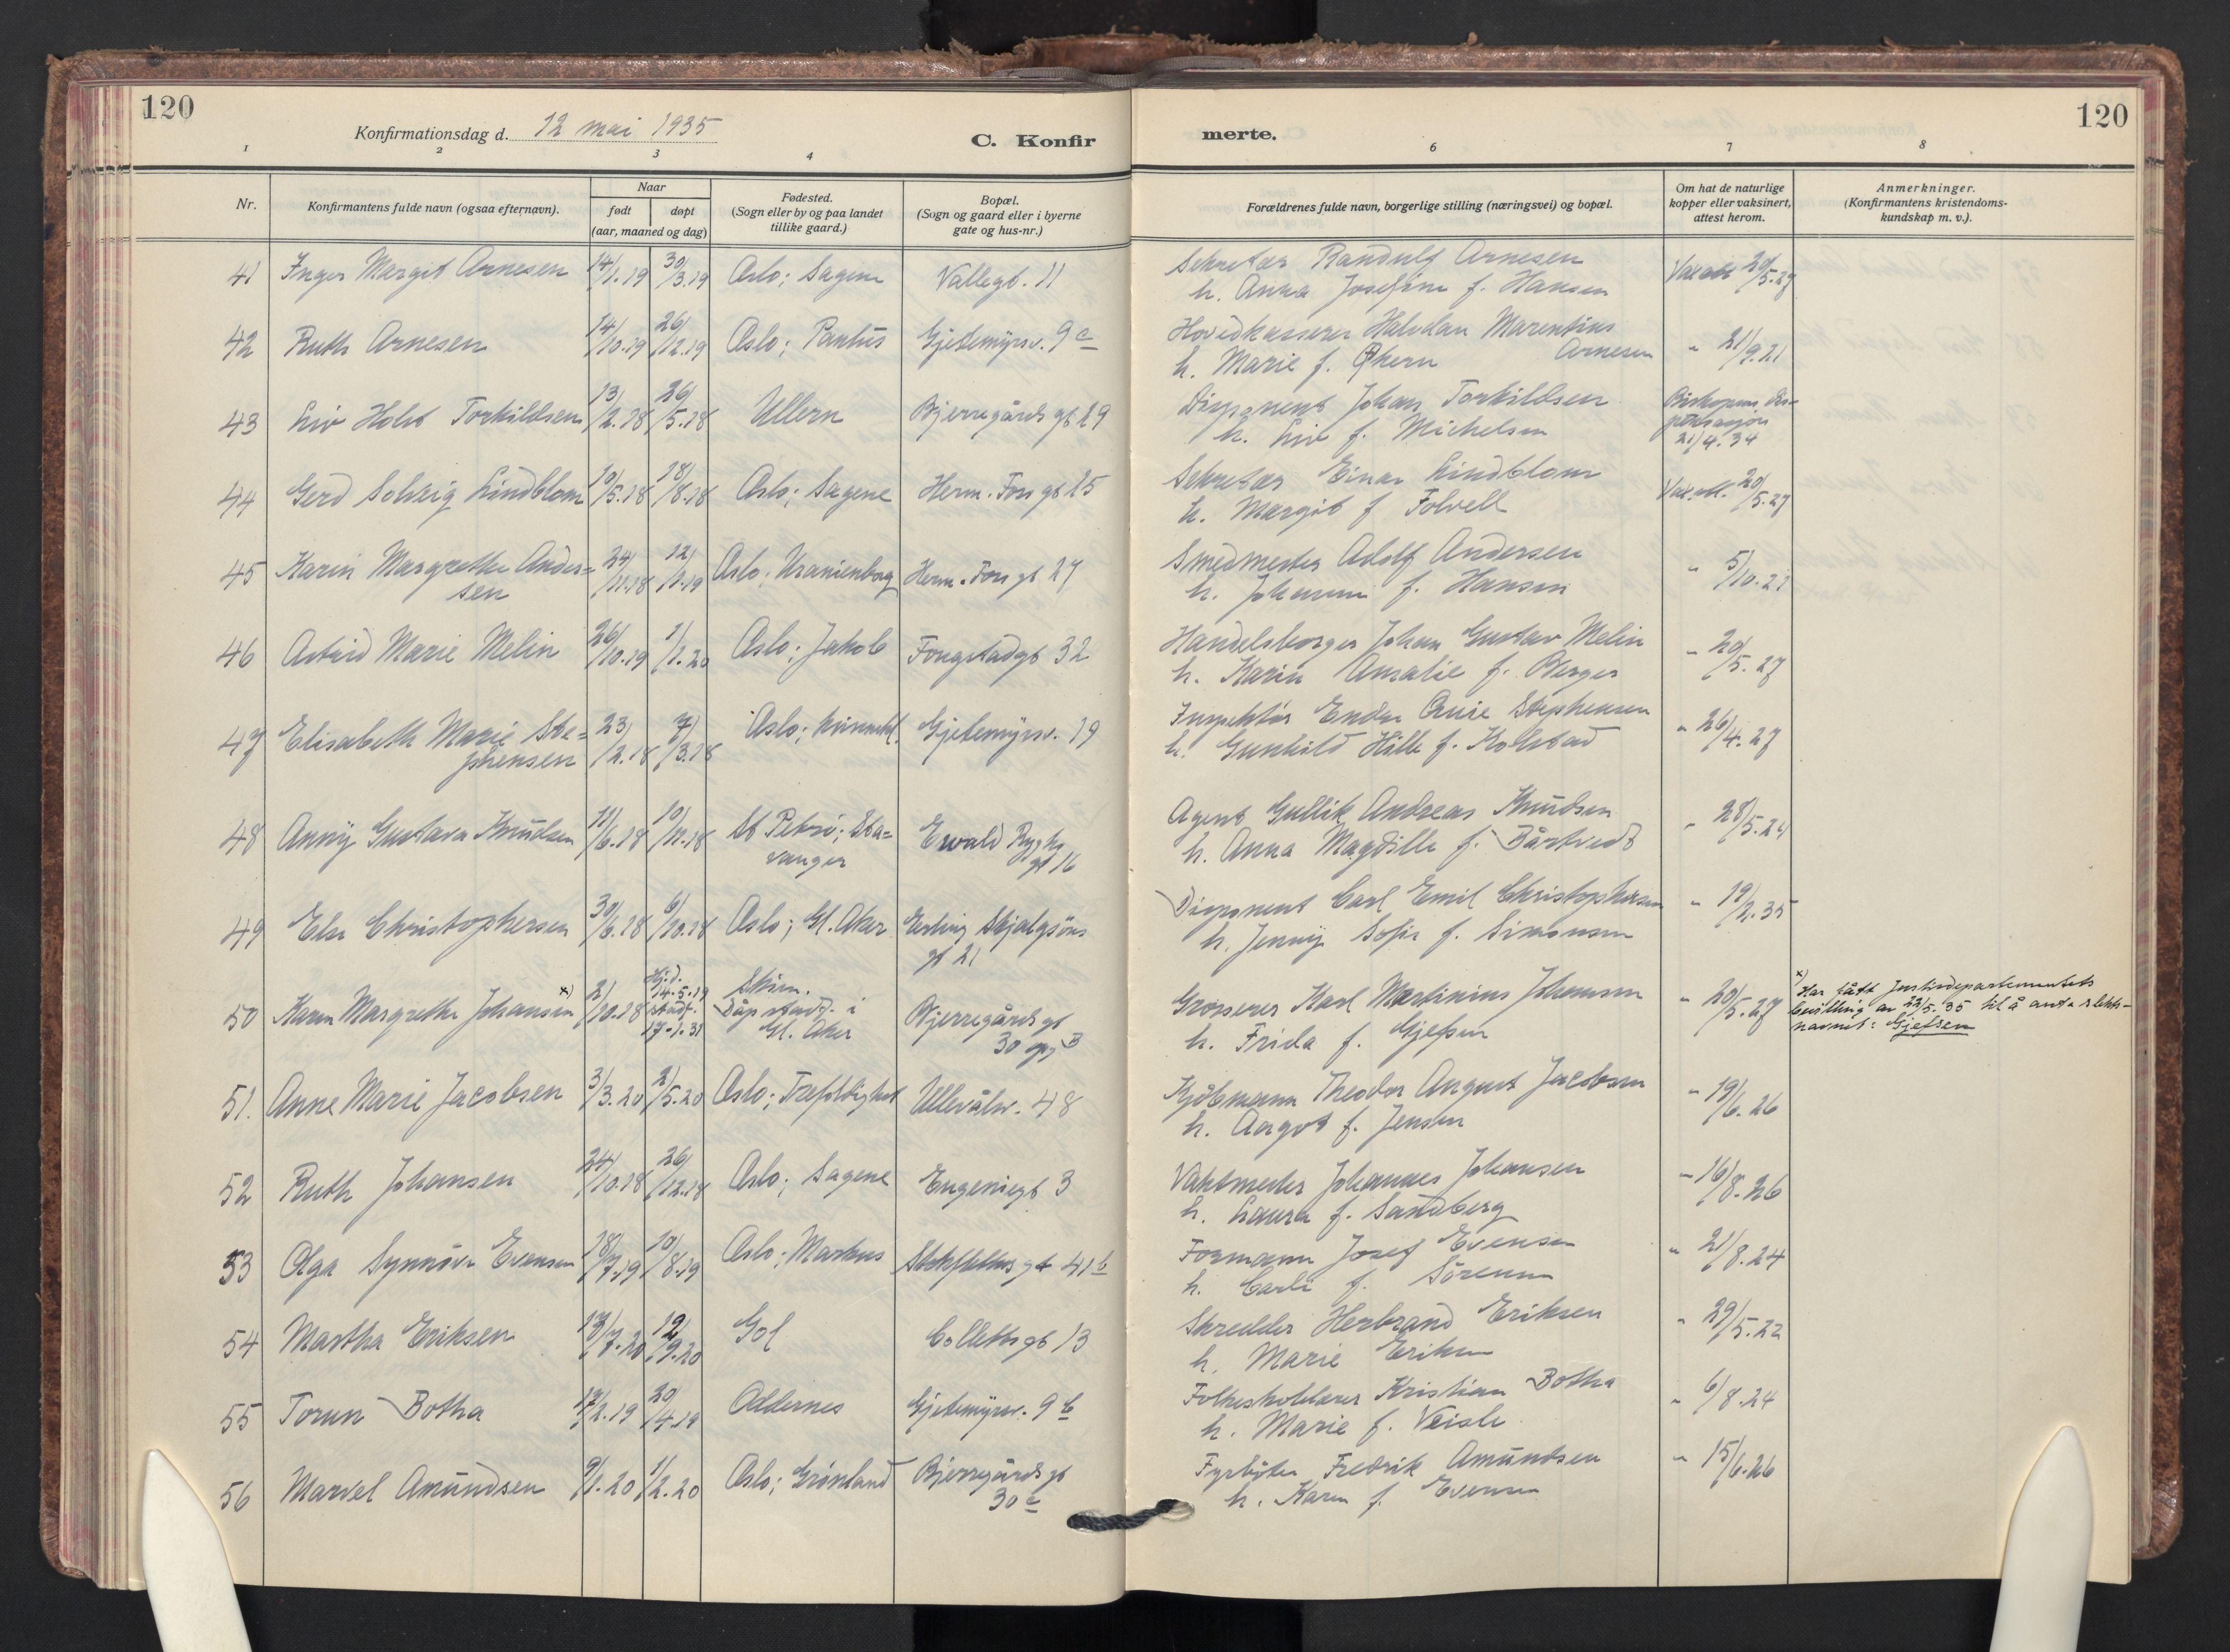 120
Konfirmationsdag d. 12 mai 1935
C. Konfir
merte.
120
1 2 3 4 6 7 8
Nr.
Konfirmantens fulde navn (ogsaa efternavn).
Naar
født
døpt
(aar, maaned og dag)
Fødested.
(Sogn eller by og paa landet
tillike gaard.)
Bopæl.
(Sogn og gaard eller i byerne
gate og hus-nr.)
Forældrenes fulde navn, borgerlige stilling (næringsvei) og bopæl.
Om hat de naturlige
kopper eller vaksinert,
attest herom.
Anmerkninger.
(Konfirmantens kristendoms-
kundskap m. v.).
41 Inger Margit Arnesen 14/1.19 30/3.19 Oslo; Sagene Vallegt. 11 Sekretær Randulf Arnesen Vax att 20/5.27
h. Anna Josefine f. Hansen
42 Ruth Arnesen 14/10.19 26/12.19 Oslo; Paulus Gjetemyrsv. 9 c Hovedkasserer Halvdan Marentius Arnesen " 21/9.21
h. Marie f. Økern
43 Liv Holst Torkildsen 13/2.18 26/5.18 Ullern Bjerregårds gt 29 Disponent Johan Torkildsen Biskopens dis-
pensasjon
21/4.34
h. Liv f. Michelsen
44 Gerd Solveig Lindblom 10/5.18 18/8.18 Oslo; Sagene Herm. Foss gt 25 Sekretær Einar Lindblom Vax. att. 20/5.27
h. Margit f Folvell
45 Karin Margrethe Ander=
sen 24/11.18 12/1.19 Oslo; Uranienborg Herm. Foss gt 27 Smedmester Adolf Andersen " 5/10.21
h. Johanne f. Hansen
46 Astrid Marie Melin 26/10.19 1/1.20 Oslo; Jakob Fougstadgt 32 Handelsborger Johan Gustav Melin " 20/5.27
h. Karin Amalie f. Berger
47 Elisabeth Marie Ste=
phensen 23/2.18 7/3.18 Oslo; kvinnekl. Gjetemyrsv. 19 Inspektør Endre Stephensen " 26/4.27
h. Gunhild Hille f. Kolstad
48 Anny Gustava Knudsen 11/6.18 10/11.18 St Petri; Sta=
vanger Ewald Ryghs
gt 16 Agent Gullik Andreas Knudsen " 28/5.24
h. Anna Magdille f. Bårtvedt
49 Else Christophersen 30/6.18 6/10.18 Oslo; Gl. Aker Erling Skjalgsøns
gt 21 Disponent Carl Emil Christophersen " 19/2.35
h. Jenny Sofie f. Simonsen
50 Karen Margrethe Johansen x) 2/10.18 Hj.d.
14.5.19
stadf.
17-1.31 Skien.
Dåp stadf. i
Gl. Aker Bjerregårds gt
30 opg B Grosserer Karl Martinius Johannsen " 20/5.27
h. Frida f. Gjefsen
x) Har fått Justisdepartementets
bevilling av 22/5.35 til å anta slekts-
navnet: Gjefsen
51. Anne Marie Jacobsen 3/3.20 2/5.20 Oslo; Trefoldighet Ullevålsv. 48 Kjøbmann Theodor August Jacobsen " 19/6.26
h. Aagot f. Jensen
52 Ruth Johansen 24/10.18 26/12.18 Oslo; Sagene Eugeniegt 3 Vaktmester Johannes Johansen " 16/8.26
h. Laura f. Sandberg
53 Olga Synnøve Evensen 18/7.19 10/8.19 Oslo; Markus Stensflethsgt 41 b Formann Josef Evensen " 21/8.24
h. Carli f. Sørensen
54 Martha Eriksen 13/7.20 12/9.20 Gol Colletts gt 13 Skredder Herbrand Eriksen " 29/5.22
h. Marie Eriksen
55 Torun Botha 17/2.19 20/4.19 Oddernes Gjetemyrsv. 9 b Folkeskolelærer Kristian Botha " 6/8.24
h. Marie f. Veisle
56 Marvel Amundsen 9/1.20 1/2.20 Oslo; Grønland Bjerregårds gt
30 c Fyrbøter Fredrik Amundsen " 15/6.26
h. Karen f. Evensen